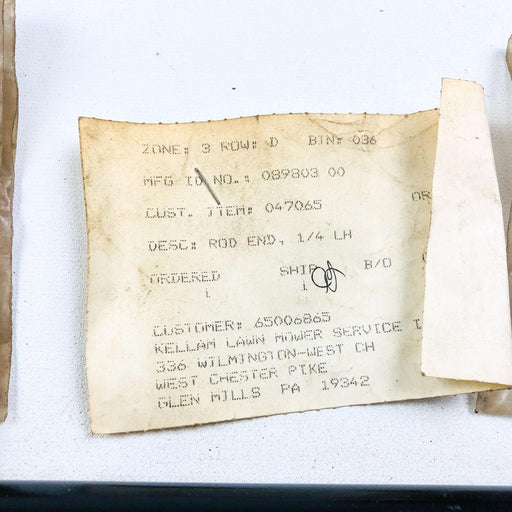 ZONE: 3 ROW: D BIN: 036
MFG ID NO.: 089803 00
CUST. ITEM: 047065 OR
DESC: ROD END, 1/4 LH
ORDERED SHIP B/O
1 1
CUSTOMER: 65006865
KELLAM LAWN MOWER SERVICE I
336 WILMINGTON-WEST CH
WEST CHESTER PIKE
GLEN MILLS PA 19342